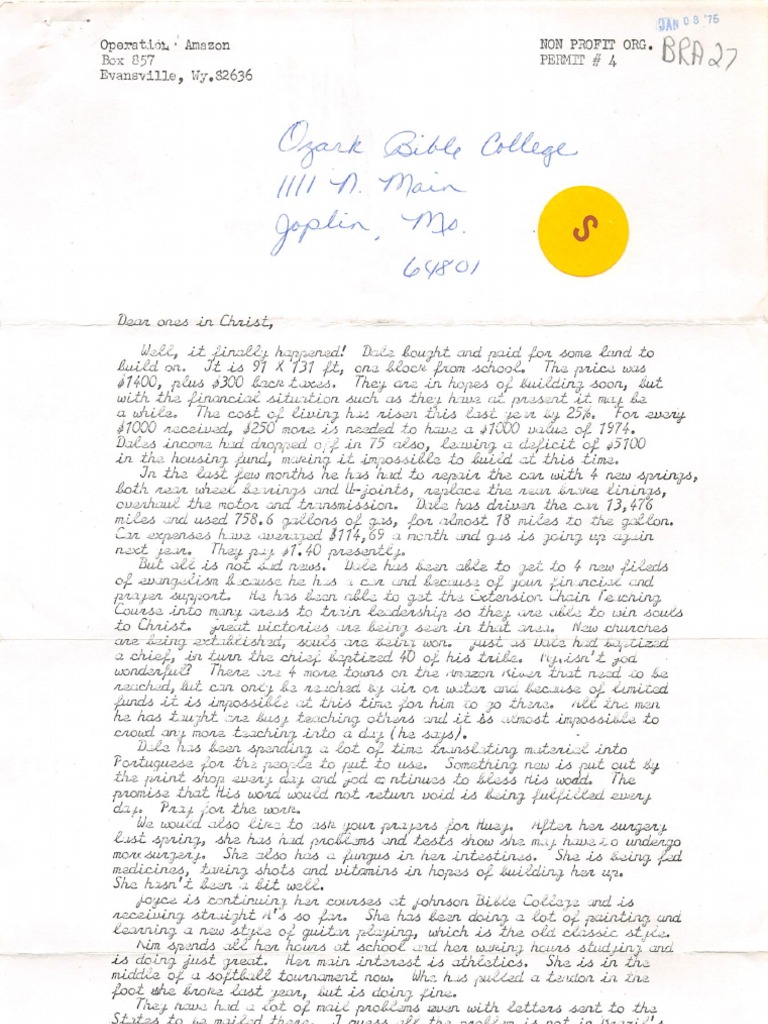 JAN 08 '76
Operation Amazon
Box 857
Evansville, Wy.82636
NON PROFIT ORG.
PERMIT # 4
BRA 27
Ozark Bible College
1111 N. Main
Joplin, Mo.
64801
S
Dear ones in Christ,
Well, it finally happened! Dale bought and paid for some land to
build on. It is 91 X 131 ft, one block from school. The price was
$1400, plus $300 back taxes. They are in hopes of building soon, but
with the financial situation such as they have at present it may be
a while. The cost of living has risen this last year by 25%. For every
$1000 received, $250 more is needed to have a $1000 value of 1974.
Dales income had dropped off in 75 also, leaving a deficit of $5100
in the housing fund, making it impossible to build at this time.
In the last few months he has had to repair the car with 4 new springs,
both rear wheel bearings and U-joints, replace the rear brake linings,
overhaul the motor and transmission. Dale has driven the car 13,476
miles and used 758.6 gallons of gas, for almost 18 miles to the gallon.
Car expenses have averaged $114,69 a month and gas is going up again
next year. They pay $1.40 presently.
But all is not bad news. Dale has been able to get to 4 new fileds
of evangelism because he has a car and because of your financial and
prayer support. He has been able to get the Extension Chain Teaching
Course into many areas to train leadership so they are able to win souls
to Christ. Great victories are being seen in that area. New churches
are being extablished, souls are being won. Just as Dale had baptized
a chief, in turn the chief baptized 40 of his tribe. My, isn't God
wonderful? There are 4 more towns on the Amazon River that need to be
reached, but can only be reached by air or water and because of limited
funds it is impossible at this time for him to go there. All the men
he has taught are busy teaching others and it is almost impossible to
crowd any more teaching into a day (he says).
Dale has been spending a lot of time translating material into
Portuguese for the people to put to use. Something new is put out by
the print shop every day and God continues to bless His wodd. The
promise that His word would not return void is being fulfilled every
day. Pray for the work.
We would also like to ask your prayers for Huey. After her surgery
last spring, she has had problems and tests show she may have to undergo
more surgery. She also has a fungus in her intestines. She is being fed
medicines, taking shots and vitamins in hopes of building her up.
She hasn't been a bit well.
Joyce is continuing her courses at Johnson Bible College and is
receiving straight A's so far. She has been doing a lot of painting and
learning a new style of guitar playing, which is the old classic style.
Kim spends all her hours at school and her waking hours studying and
is doing just great. Her main interest is athletics. She is in the
middle of a softball tournament now. Whe has pulled a tendon in the
foot she broke last year, but is doing fine.
They have had a lot of mail problems even with letters sent to the
States to be mailed there. I guess all the problem is not in Brazil's